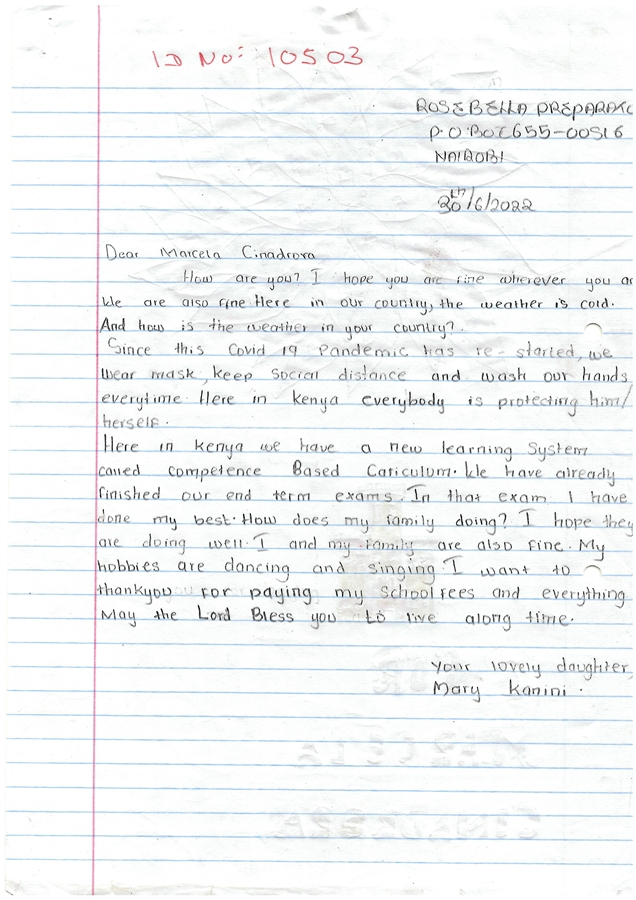 ID No: 10503
ROSEBELLA PREPARATO
P.O.BOX 655-00516
NAIROBI
30th/6/2022
Dear Marcela Cinadrova
How are you? I hope you are fine wherever you ar
We are also fine Here in our country, the weather is cold.
And how is the weather in your country?
Since this Covid 19 Pandemic has re-started, we
wear mask, keep social distance and wash our hands
everytime. Here in kenya everybody is protecting him/
herself.
Here in kenya we have a new learning System
called competence Based Cariculum. We have already
finished our end term exams. In that exam I have
done my best. How does my family doing? I hope they
are doing well. I and my family are also fine. My
hobbies are dancing and singing. I want to
thankyou for paying my schoolfees and everything
May the Lord Bless you to live along time.
Your lovely daughter,
Mary Kanini.